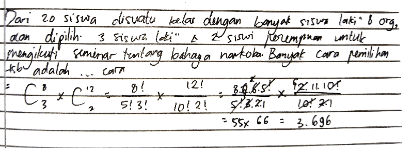 Dari 20 siswa disuatu kelas dengan banyak siswa laki" 8 org,
akan dipilih 3 siswa laki" & 2 siswi perempuan untuk
mengikuti seminar tentang bahaya narkoba. Banyak cara pemilihan
tsb adalah ... cara
= C 8 3 × C 12 2 = 8! / 5! 3! × 12! / 10! 2! = 8.7.6.5! / 5! 3.2.1 × 12.11.10! / 10! 2.1
= 55 x 66 = 3.696